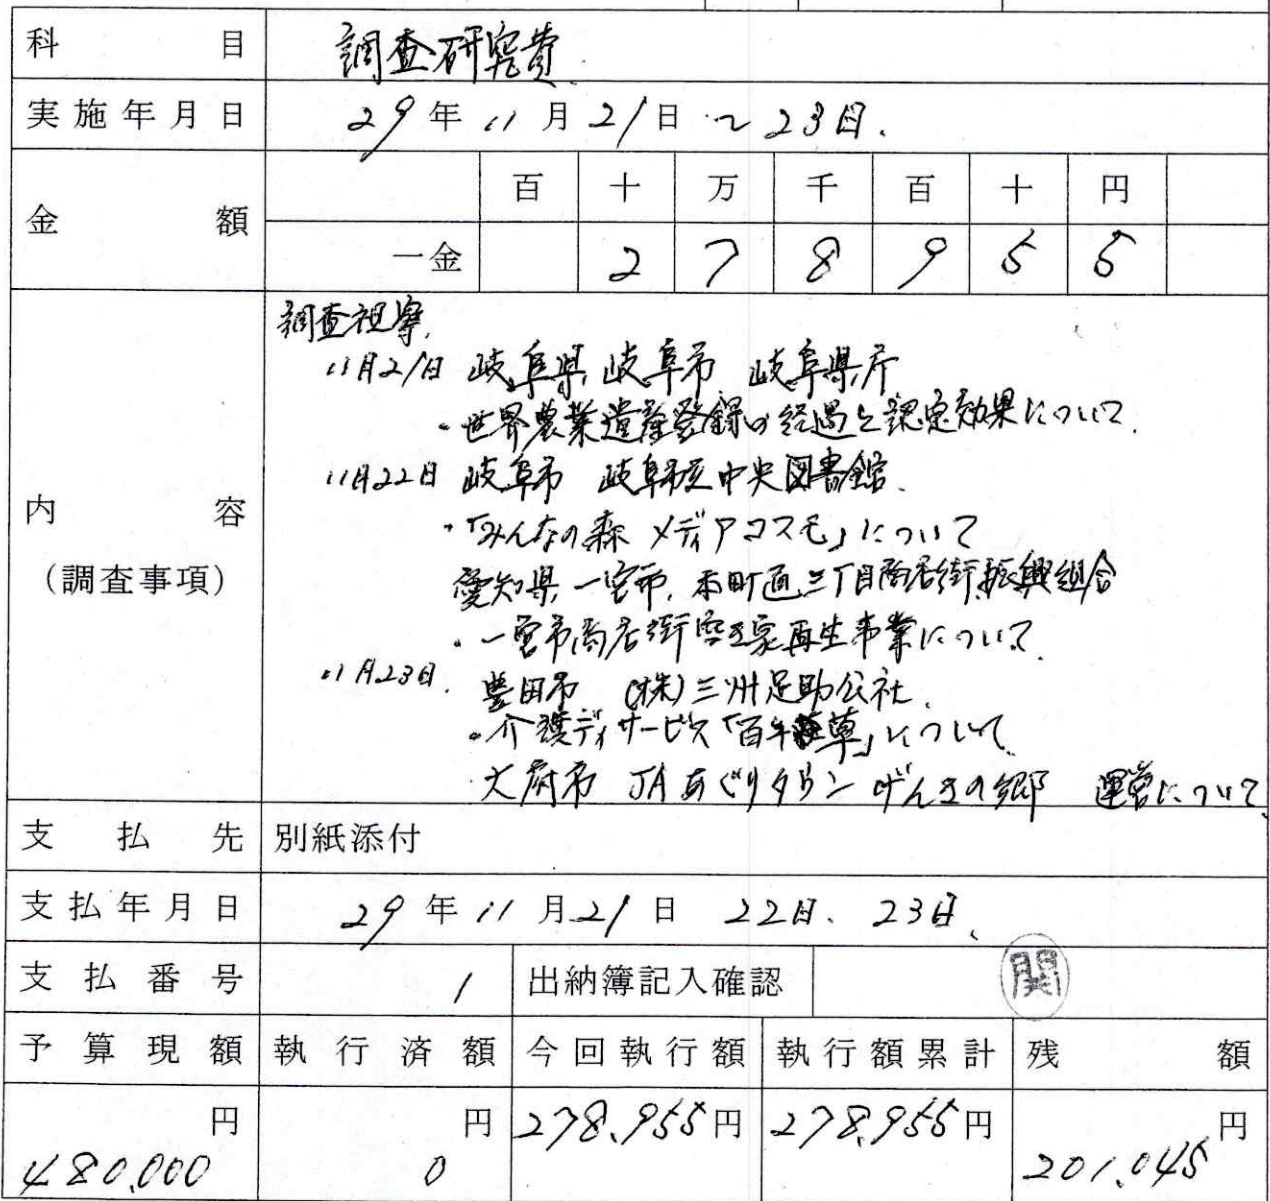 科目 調査研究費
実施年月日 29年11月21日～23日.
百 十 万 千 百 十 円
金額
一金 2 7 8 9 5 5
調査視察.
11月21日 岐阜県 岐阜市 岐阜県庁
・世界農業遺産登録の経過と認定効果について.
11月22日 岐阜市 岐阜市立中央図書館.
・「みんなの森 メディアコスモ」について
内容
(調査事項)
愛知県 一宮市. 本町通三丁目商店街振興組合
・一宮市商店街空き家再生事業について.
11月23日. 豊田市 (株)三州足助公社.
・介護ディサービス「百年草」について
大府市 JAあぐりタウン げんきの郷 運営について.
支払先 別紙添付
支払年月日 29年11月21日 22日. 23日.
支払番号 1 出納簿記入確認 関
予算現額 執行済額 今回執行額 執行額累計 残額
円 円 278.955円 278.955円 円
480.000 0 201.045